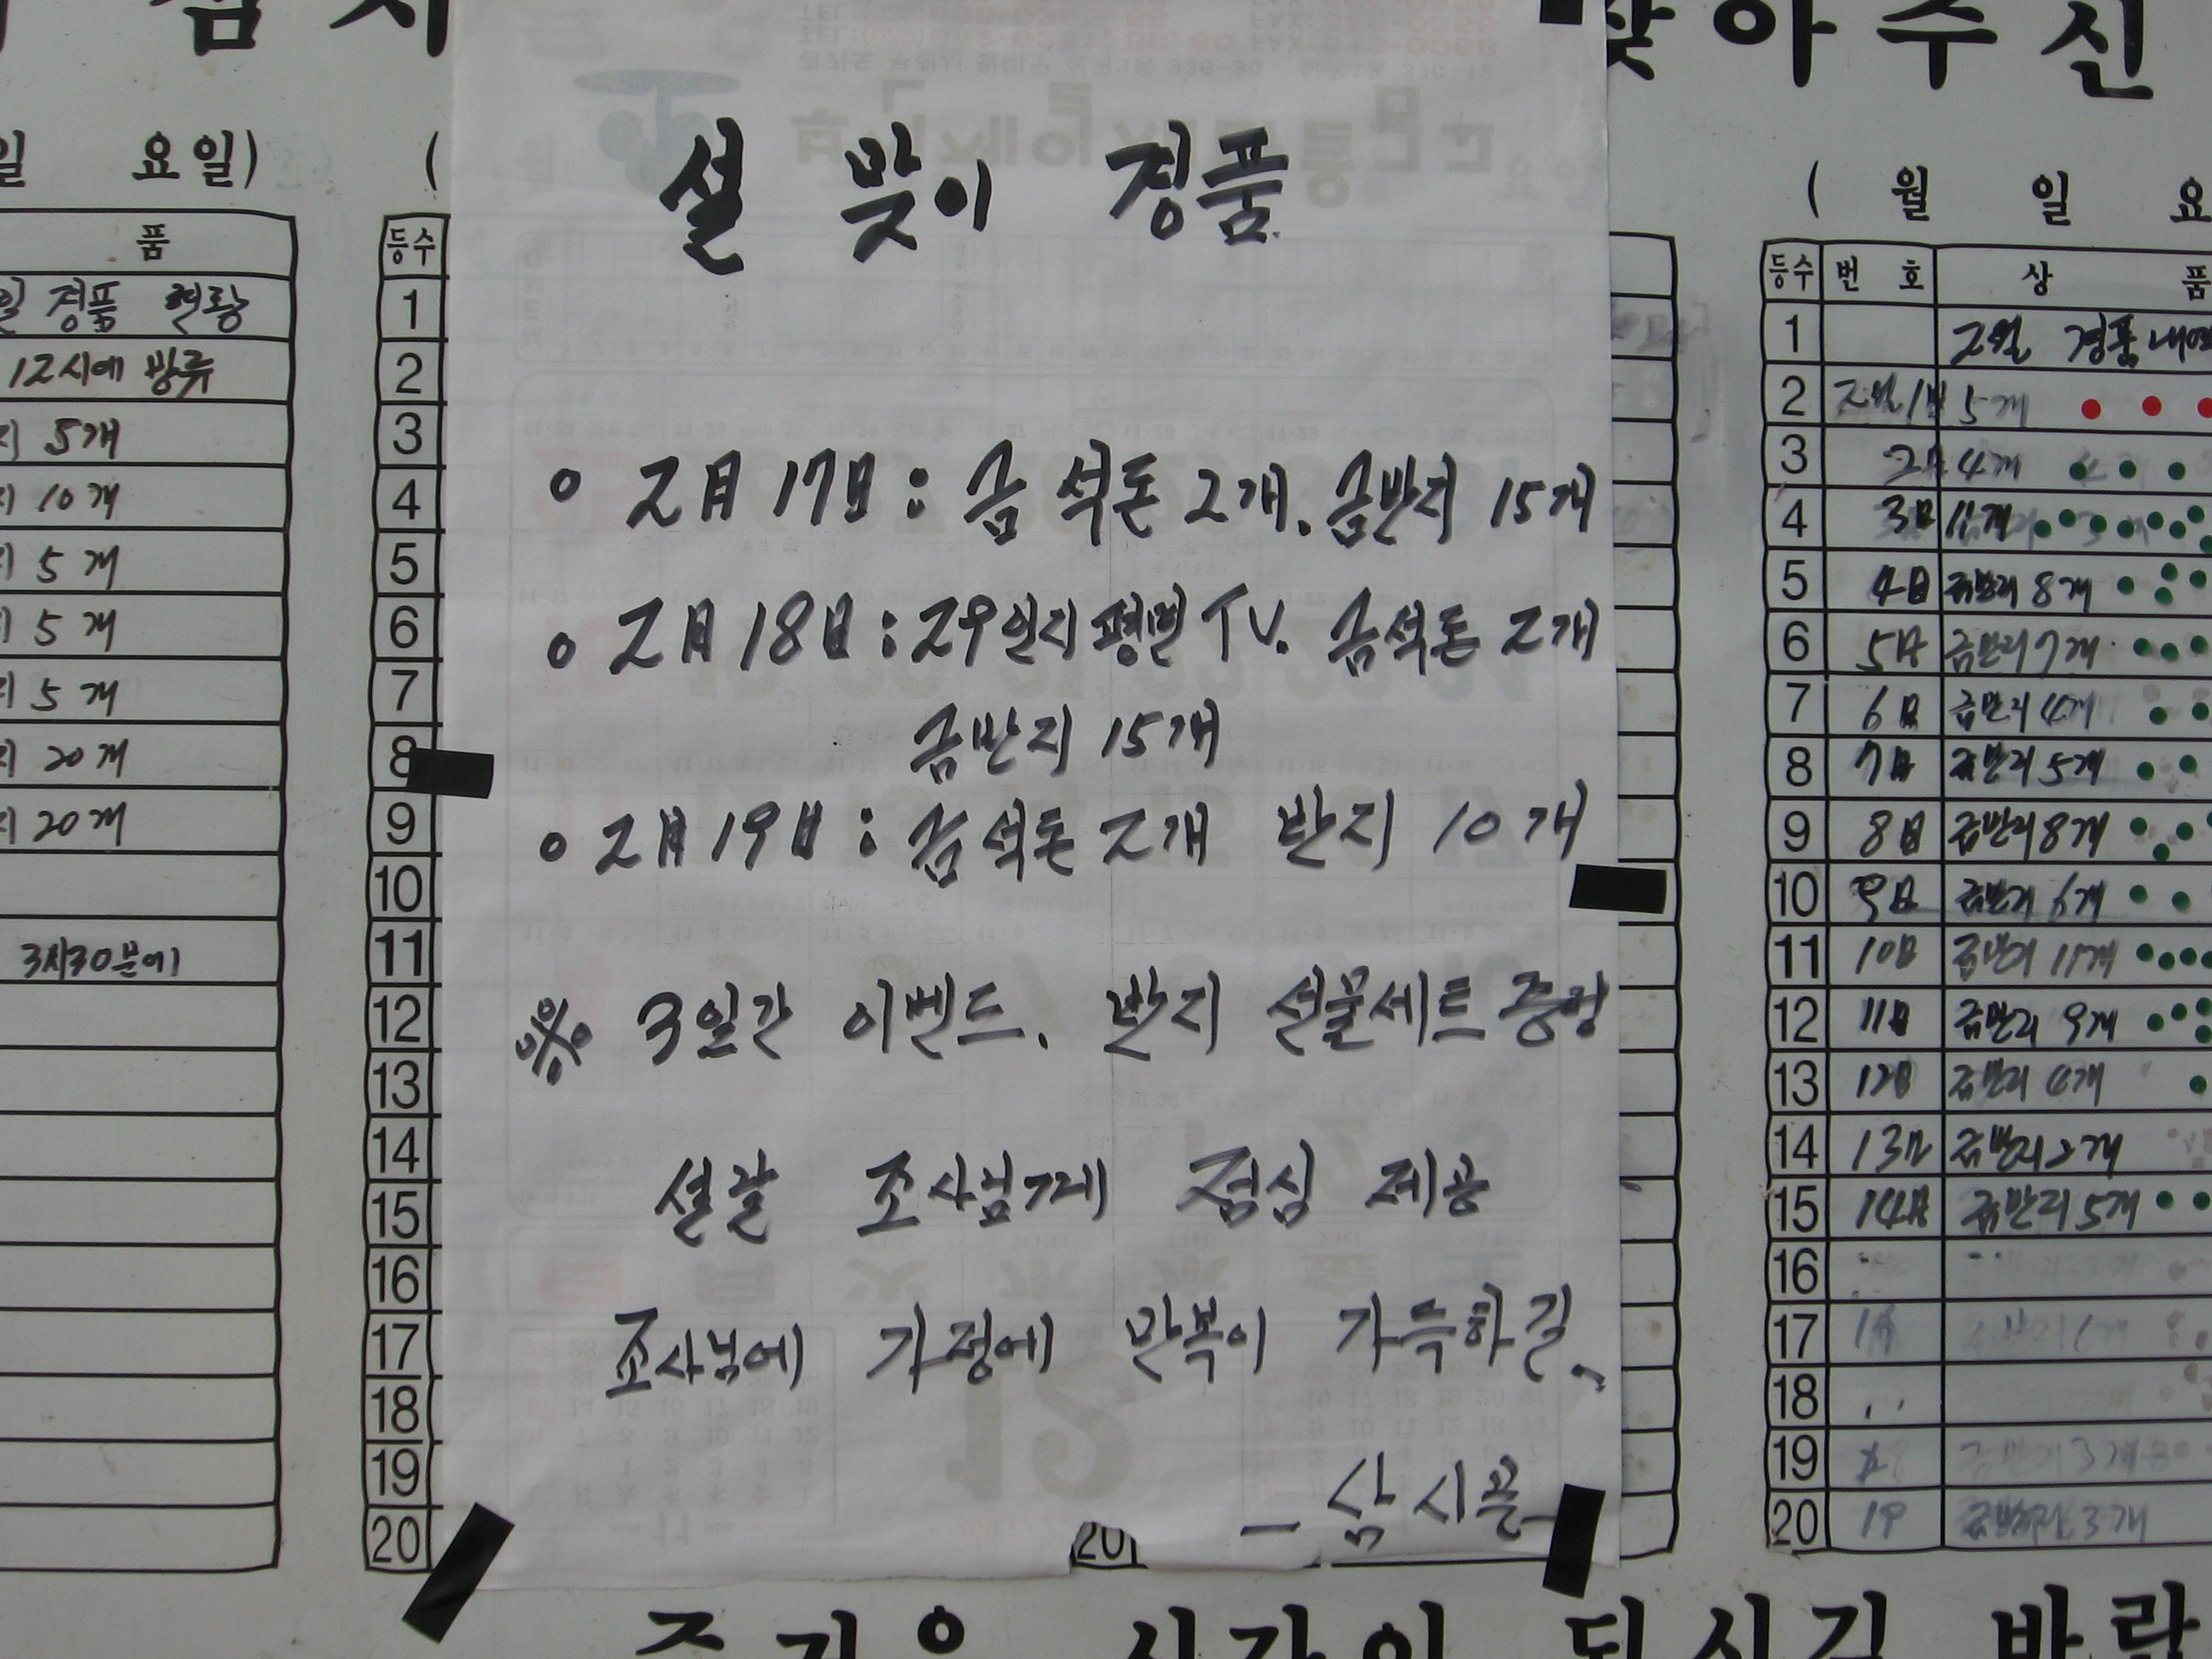 맞아주신
요일)
(
( 월 일 요
설 맞이 경품
품
경품 현황
12시에 방류
5개
10개
5개
5개
5개
20개
20개
3시30분에
등수
1
2
3
4
5
6
7
8
9
10
11
12
13
14
15
16
17
18
19
20
o 2月 17日 : 금 석돈 2개. 금반지 15개
o 2月 18日 : 29인치 평면 TV. 금석돈 2개
금반지 15개
o 2月 19日 : 금 석돈 2개 반지 10개
※ 3일간 이벤트. 반지 선물세트 증정
설날 조사님께 점심 제공
조사님에 가정에 만복이 가득하길.
- 삼시골 -
20
등수 번 호 상 품
1 2월 경품내역
2 2월 1日 5개
3 2日 4개
4 3日 11개
5 4日 금반지 8개
6 5日 금반지 7개
7 6日 금반지 4개
8 7日 금반지 5개
9 8日 금반지 8개
10 9日 금반지 6개
11 10日 금반지 11개
12 11日 금반지 9개
13 12日 금반지 4개
14 13日 금반지 2개
15 14日 금반지 5개
16
17 금반지 6개
18
19 금반지 3개
20 19 금반지 3개
즐거운 시간이 되시길 바랍